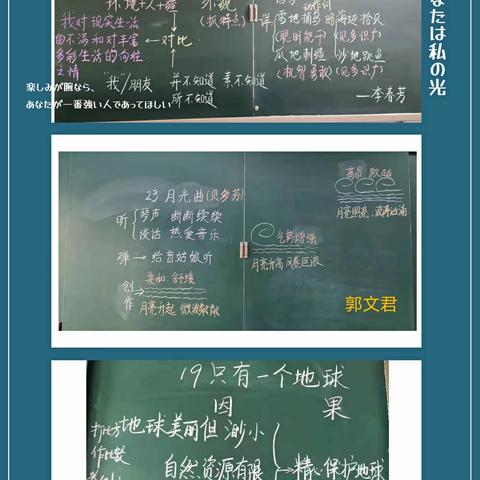 环境+人+瓷
外貌
(抓特点)
动作词
详
雪地捕鸟
海边拾贝
(聪明能干)
(见多识广)
瓜地刺猹
沙地跳鱼
(机智勇敢)
(见多识广)
我对现实生活
的不满和对丰富
多彩生活的向往
之情
对比
"我"/朋友
并不知道 素不知道
所不知道
—李春芳
楽しみが腕なら、
あなたが一番強い人であってほしい
なたは私の光
23 月光曲(贝多芬)
听
琴声 断断续续
谈话 热爱音乐
弹→给盲姑娘听
创作
柔和 舒缓
月亮升起 微波粼粼
气势增强
月亮升高 风卷巨浪
高昂 激越
月亮照亮 波涛汹涌
郭文君
19只有一个地球
因 果
打比方
作比较
地球美丽但渺小
自然资源有限
精心保护地球